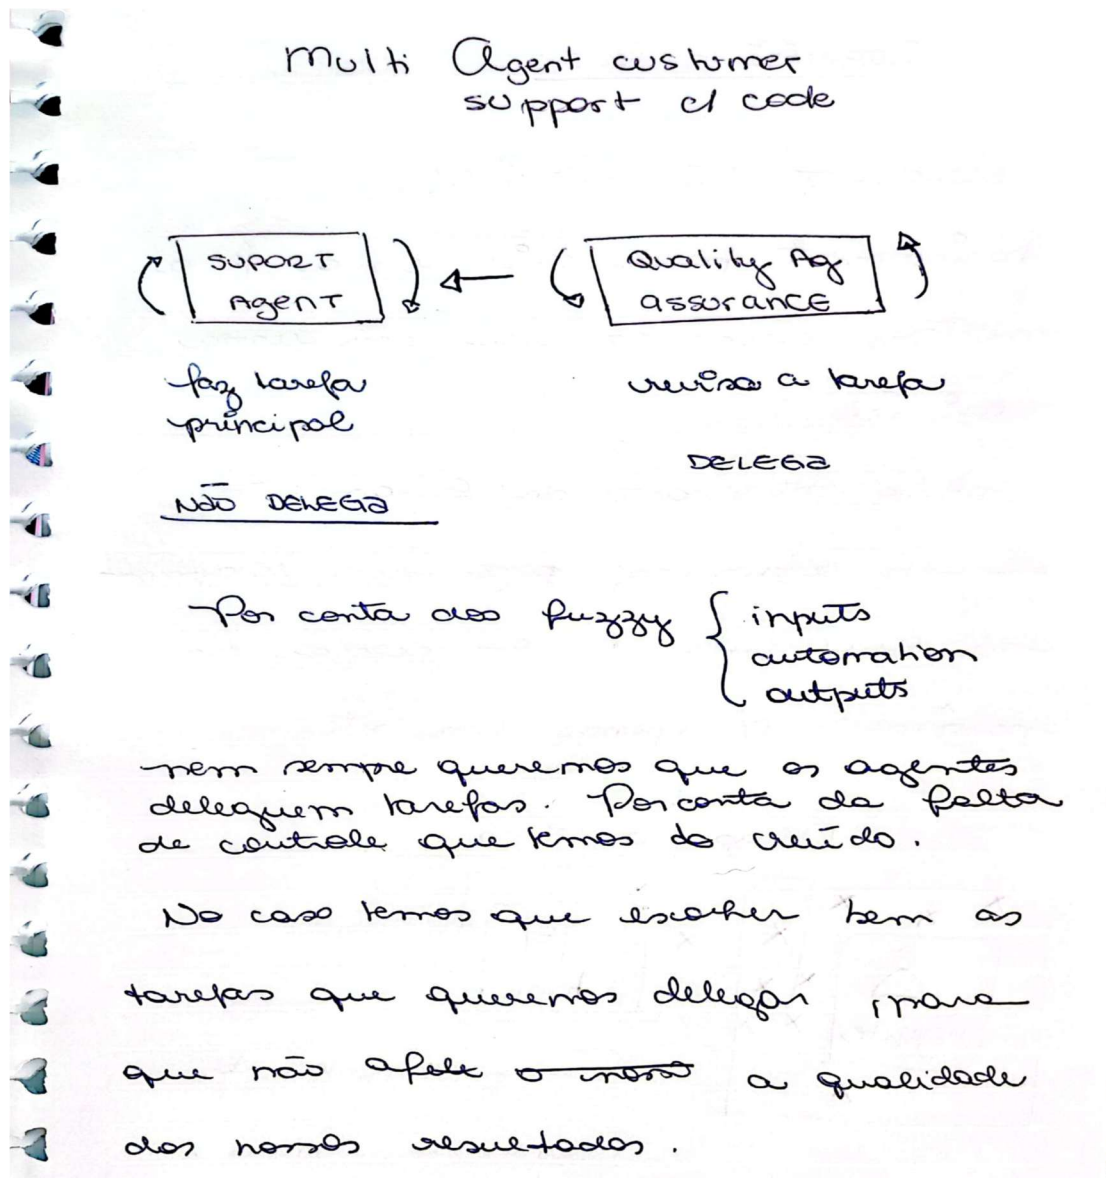 Multi Agent customer
support c/ code
SUPORT
Agent
Quality Ag
assurance
faz tarefa
principal
revisa a tarefa
DELEGA
NÃO DELEGA
Por conta dos fuzzy { inputs
automation
outputs
nem sempre queremos que os agentes
deleguem tarefas. Por conta da falta
de controle que temos do
No caso temos que escolher bem as
tarefas que queremos delegar, para
que não afete o nosso a qualidade
dos nossos resultados.